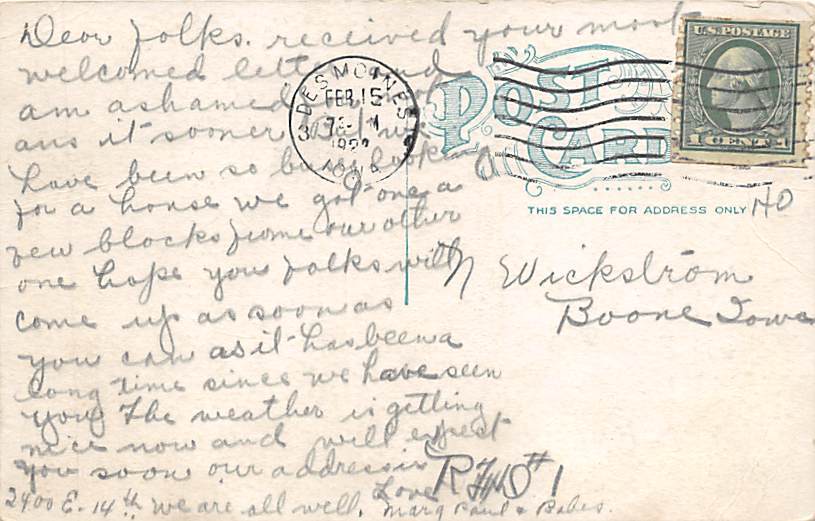 Dear folks. received your most
welcomed letter and
am ashamed
ans it sooner but we
have been so busy looking
for a house we got one a
few blocks from our other
one hope you folks will
come up as soon as
you can as it has been a
long time since we have seen
you. The weather is getting
nice now and will expect
you soon our address is
2400 E. 14th we are all well. Love Marg Paul & Babes.
DES MOINES
FEB 15
IOWA
U.S. POSTAGE
1 CENT 1
POST CARD
THIS SPACE FOR ADDRESS ONLY
N Wickstrom
Boone Iowa
R #1